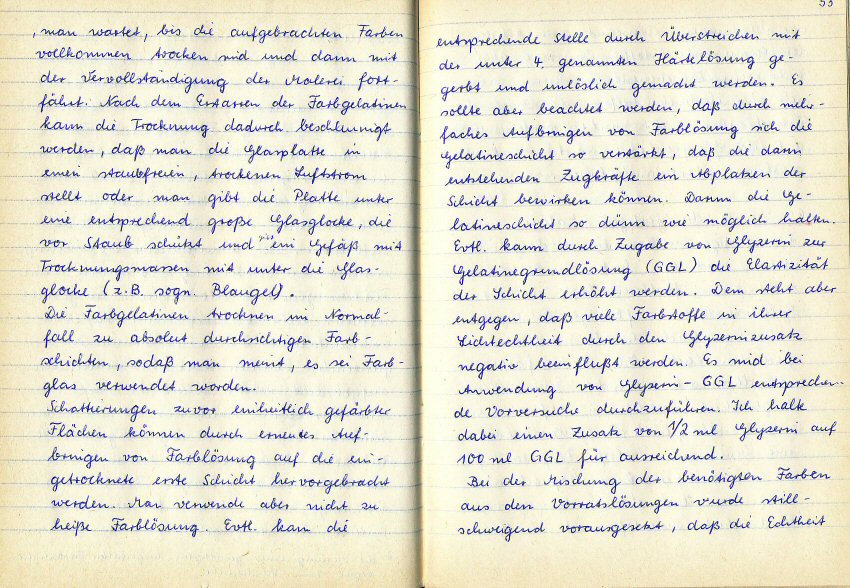 , man wartet, bis die aufgebrachten Farben
vollkommen trocken sind und dann mit
der Vervollständigung der Malerei fort-
fährt. Nach dem Erstarren der Farbgelatinen
kann die Trocknung dadurch beschleunigt
werden, daß man die Glasplatte in
einen staubfreien, trockenen Luftstrom
stellt oder man gibt die Platte unter
eine entsprechend große Glasglocke, die
vor Staub schützt und ein Gefäß mit
Trocknungsmassen mit unter die Glas-
glocke (z.B. sogn. Blaugel).
Die Farbgelatinen trocknen im Normal-
fall zu absolut durchsichtigen Farb-
schichten, sodaß man meint, es sei Farb-
glas verwendet worden.
Schattierungen zuvor einheitlich gefärbter
Flächen können durch erneutes Auf-
bringen von Farblösung auf die ein-
getrocknete erste Schicht hervorgebracht
werden. Man verwende aber nicht zu
heiße Farblösung. Evtl. kann die
53
entsprechende Stelle durch Überstreichen mit
der unter 4. genannten Härtelösung ge-
gerbt und unlöslich gemacht werden. Es
sollte aber beachtet werden, daß durch mehr-
faches Aufbringen von Farblösung sich die
Gelatineschicht so verstärkt, daß die darin
entstehenden Zugkräfte ein Abplatzen der
Schicht bewirken können. Darum die Ge-
latineschicht so dünn wie möglich halten.
Evtl. kann durch Zugabe von Glyzerin zur
Gelatinegrundlösung (GGL) die Elastizität
der Schicht erhöht werden. Dem steht aber
entgegen, daß viele Farbstoffe in ihrer
Lichtechtheit durch den Glyzerinzusatz
negativ beeinflußt werden. Es sind bei
Anwendung von Glyzerin-GGL entsprechen-
de Vorversuche durchzuführen. Ich halte
dabei einen Zusatz von 1/2 ml Glyzerin auf
100 ml GGL für ausreichend.
Bei der Mischung der benötigten Farben
aus den Vorratslösungen wurde still-
schweigend vorausgesetzt, daß die Echtheit